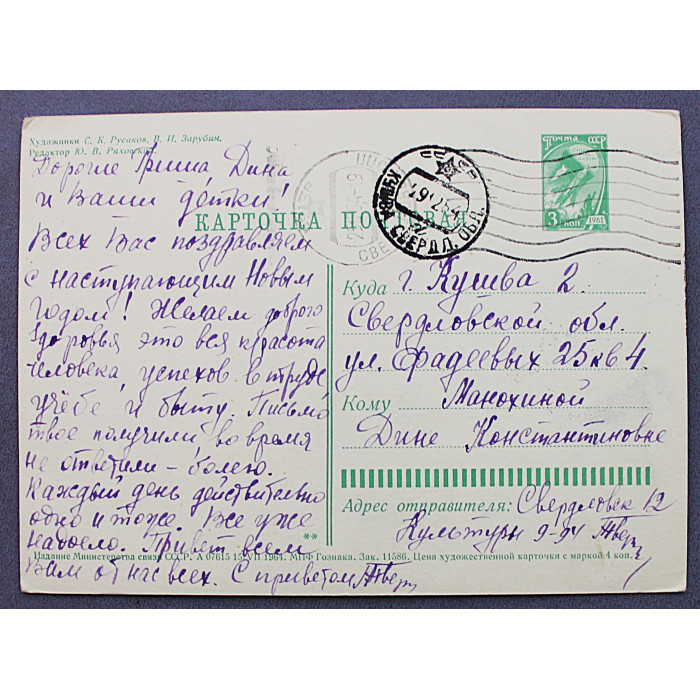 Художники С. К. Русаков, В. И. Зарубин.
Редактор Ю. В. Ряховский
Дорогие Гриша Дина
и Ваши детки!
Всех Вас поздравляем
с наступающим Новым
годом! Желаем доброго
здоровья это вся красота
человека, успехов в труде
учёбе и быту. Письмо
твое получили, во время
не ответили – болею.
Каждый день действительно
одно и тоже. Все уже
надоело. Привет всем
Вам от нас всех. С приветом
ПОЧТА СССР
3 КОП
1961
КУШВА
СВЕРДЛ. ОБЛ.
КАРТОЧКА ПОЧТОВАЯ
Куда г. Кушва 2
Свердловской обл.
ул. Фадеевых 25 кв 4.
Кому Манохиной
Дине Константиновне
Адрес отправителя: Свердловск 12
Культуры 9-94
**
Издание Министерства связи СССР. А 07615 15/VII 1964. МПФ Гознака. Зак. 11586. Цена художественной карточки с маркой 4 коп.